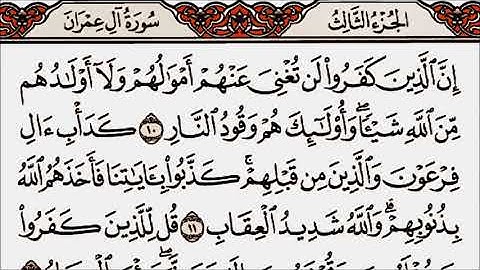 الجُزْءُ الثَّالِثُ
سُورَةُ آلِ عِمْرَانَ
إِنَّ ٱلَّذِينَ كَفَرُوا۟ لَن تُغْنِىَ عَنْهُمْ أَمْوَٰلُهُمْ وَلَآ أَوْلَٰدُهُم
مِّنَ ٱللَّهِ شَيْـًٔا ۖ وَأُو۟لَٰٓئِكَ هُمْ وَقُودُ ٱلنَّارِ ١٠ كَدَأْبِ ءَالِ
فِرْعَوْنَ وَٱلَّذِينَ مِن قَبْلِهِمْ ۚ كَذَّبُوا۟ بِـَٔايَٰتِنَا فَأَخَذَهُمُ ٱللَّهُ
بِذُنُوبِهِمْ ۗ وَٱللَّهُ شَدِيدُ ٱلْعِقَابِ ١١ قُل لِّلَّذِينَ كَفَرُوا۟